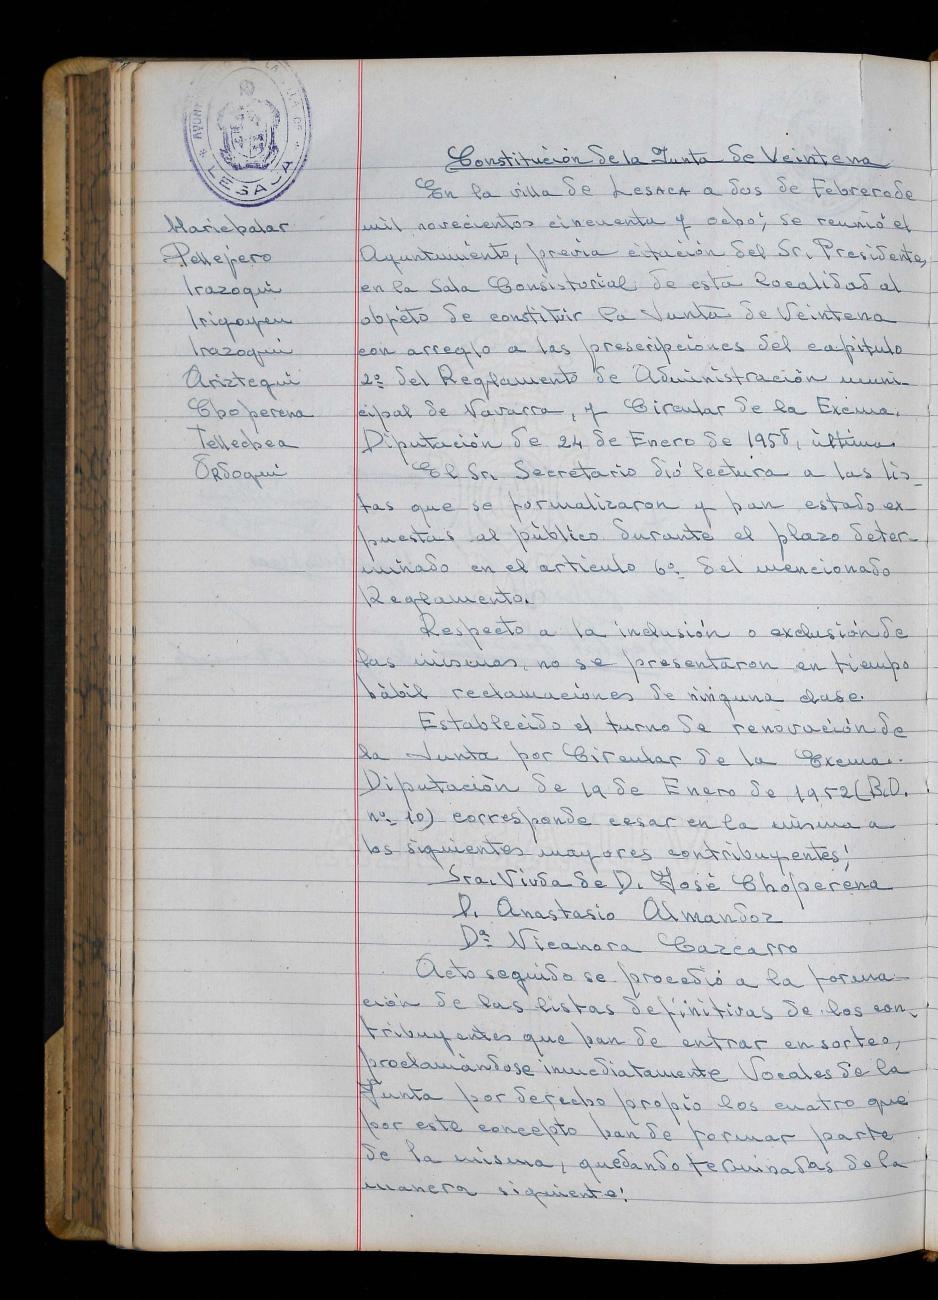 LESACA
Constitución de la Junta de Veintena
En la villa de Lesaca a dos de Febrero de
mil novecientos cincuenta y ocho; se reunió el
Ayuntamiento, previa citación del Sr. Presidente,
en la Sala Consistorial de esta localidad al
objeto de constituir la Junta de Veintena
con arreglo a las prescripciones del capítulo
2º del Reglamento de Administración muni-
cipal de Navarra, y Circular de la Excma.
Diputación de 24 de Enero de 1958, último.
El Sr. Secretario dió lectura a las lis-
tas que se formalizaron y han estado ex-
puestas al público durante el plazo deter-
minado en el artículo 6º del mencionado
Reglamento.
Respecto a la inclusión o exclusión de
las mismas, no se presentaron en tiempo
hábil reclamaciones de ninguna clase.
Establecido el turno de renovación de
la Junta por Circular de la Excma.
Diputación de 19 de Enero de 1952 (B.O.
nº 10) corresponde cesar en la misma a
los siguientes mayores contribuyentes:
Sra. Viuda de D. José Choperena
D. Anastasio Almandoz
Dª Nicanora Cazcarro
Acto seguido se procedió a la forma-
ción de las listas definitivas de los con-
tribuyentes que han de entrar en sorteo,
proclamándose inmediatamente Vocales de la
Junta por derecho propio los cuatro que
por este concepto han de formar parte
de la misma, quedando terminadas de la
manera siguiente:
Marichalar
Pellejero
Irazoqui
Irigoyen
Irazoqui
Ariztegui
Choperena
Tellechea
Ordoqui